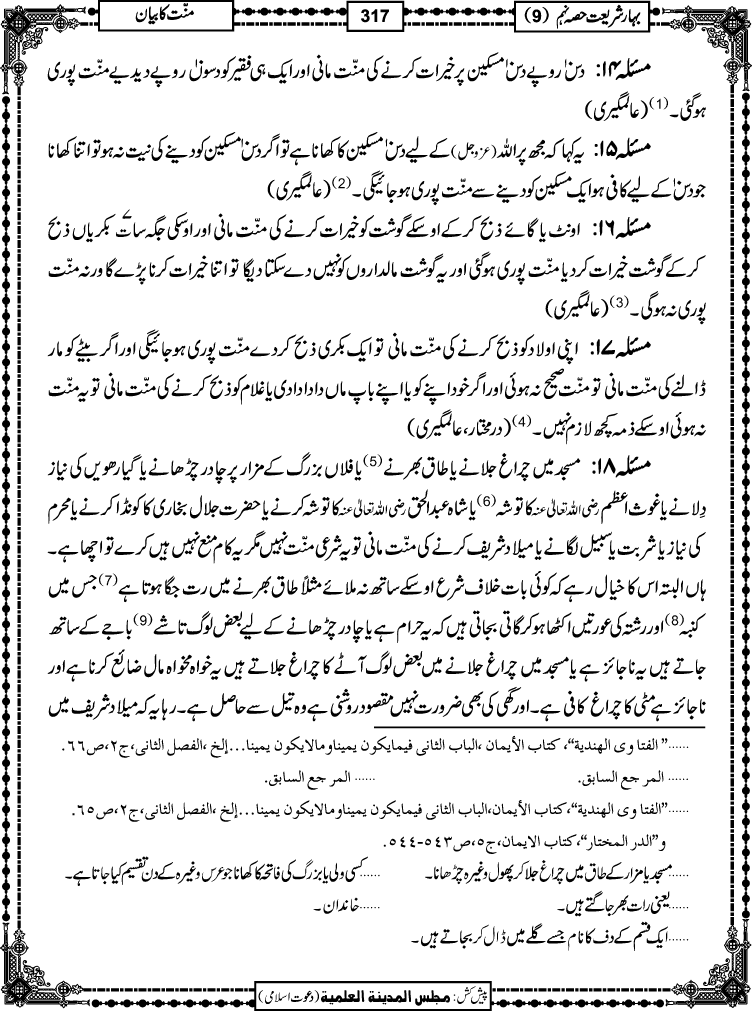 بہارِ شریعت حصہ نہم (9)
317
منّت کا بیان
مسئلہ ۱۴: دس۱۰ روپے دس۱۰ مسکین پر خیرات کرنے کی منّت مانی اور ایک ہی فقیر کو دسوں۱۰ روپے دیدیے منّت پوری
ہوگئی۔(1) (عالمگیری)
مسئلہ ۱۵: یہ کہا کہ مجھ پر اللہ (عزوجل) کے لیے دس۱۰ مسکین کا کھانا ہے تو اگر دس۱۰ مسکین کو دینے کی نیت نہ ہو تو اتنا کھانا
جو دس۱۰ کے لیے کافی ہو ایک مسکین کو دینے سے منّت پوری ہوجائیگی۔(2) (عالمگیری)
مسئلہ ۱۶: اونٹ یا گائے ذبح کرکے اوسکے گوشت کو خیرات کرنے کی منّت مانی اور اوسکی جگہ سات۷ بکریاں ذبح
کرکے گوشت خیرات کردیا منّت پوری ہوگئی اور یہ گوشت مالداروں کو نہیں دے سکتا دیگا تو اتنا خیرات کرنا پڑے گا ورنہ منّت
پوری نہ ہوگی۔(3) (عالمگیری)
مسئلہ ۱۷: اپنی اولاد کو ذبح کرنے کی منّت مانی تو ایک بکری ذبح کردے منّت پوری ہوجائیگی اور اگر بیٹے کو مار
ڈالنے کی منّت مانی تو منّت صحیح نہ ہوئی اور اگر خود اپنے کو یا اپنے باپ ماں دادا دادی یا غلام کو ذبح کرنے کی منّت مانی تو یہ منّت
نہ ہوئی اوسکے ذمہ کچھ لازم نہیں۔(4) (درمختار، عالمگیری)
مسئلہ ۱۸: مسجد میں چراغ جلانے یا طاق بھرنے(5) یا فلاں بزرگ کے مزار پر چادر چڑھانے یا گیارھویں کی نیاز
دِلانے یا غوث اعظم رضی اللہ تعالٰی عنہ کا توشہ(6) یا شاہ عبدالحق رضی اللہ تعالٰی عنہ کا توشہ کرنے یا حضرت جلال بخاری کا کونڈا کرنے یا محرم
کی نیاز یا شربت یا سبیل لگانے یا میلاد شریف کرنے کی منّت مانی تو یہ شرعی منّت نہیں مگر یہ کام منع نہیں ہیں کرے تو اچھا ہے۔
ہاں البتہ اس کا خیال رہے کہ کوئی بات خلاف شرع اوسکے ساتھ نہ ملائے مثلاً طاق بھرنے میں رت جگا ہوتا ہے(7) جس میں
کنبہ(8) اور رشتہ کی عورتیں اکٹھا ہوکر گاتی بجاتی ہیں کہ یہ حرام ہے یا چادر چڑھانے کے لیے بعض لوگ تاشے(9) باجے کے ساتھ
جاتے ہیں یہ ناجائز ہے یا مسجد میں چراغ جلانے میں بعض لوگ آٹے کا چراغ جلاتے ہیں یہ خواہ مخواہ مال ضائع کرنا ہے اور
ناجائز ہے مٹی کا چراغ کافی ہے۔ اور گھی کی بھی ضرورت نہیں مقصود روشنی ہے وہ تیل سے حاصل ہے۔ رہا یہ کہ میلاد شریف میں
......"الفتاوی الهندية"، کتاب الأیمان، الباب الثانی فیمایکون یمیناومالایکون یمینا...إلخ ، الفصل الثانی، ج۲، ص۶۶.
...... المرجع السابق. ...... المرجع السابق.
......"الفتاوی الهندية"، کتاب الأیمان، الباب الثانی فیمایکون یمیناومالایکون یمینا...إلخ ، الفصل الثانی، ج۲، ص۶۵.
و"الدر المختار"، کتاب الایمان، ج۵، ص۵۴۳-۵۴۴.
......مسجد یا مزار کے طاق میں چراغ جلا کر پھول وغیرہ چڑھانا۔ ......کسی ولی یا بزرگ کی فاتحہ کا کھانا جو عرس وغیرہ کے دن تقسیم کیا جاتا ہے۔
......یعنی رات بھر جاگتے ہیں۔ ......خاندان۔
......ایک قسم کے دف کا نام جسے گلے میں ڈال کر بجاتے ہیں۔
پیش کش: مجلس المدینة العلمیة (دعوت اسلامی)